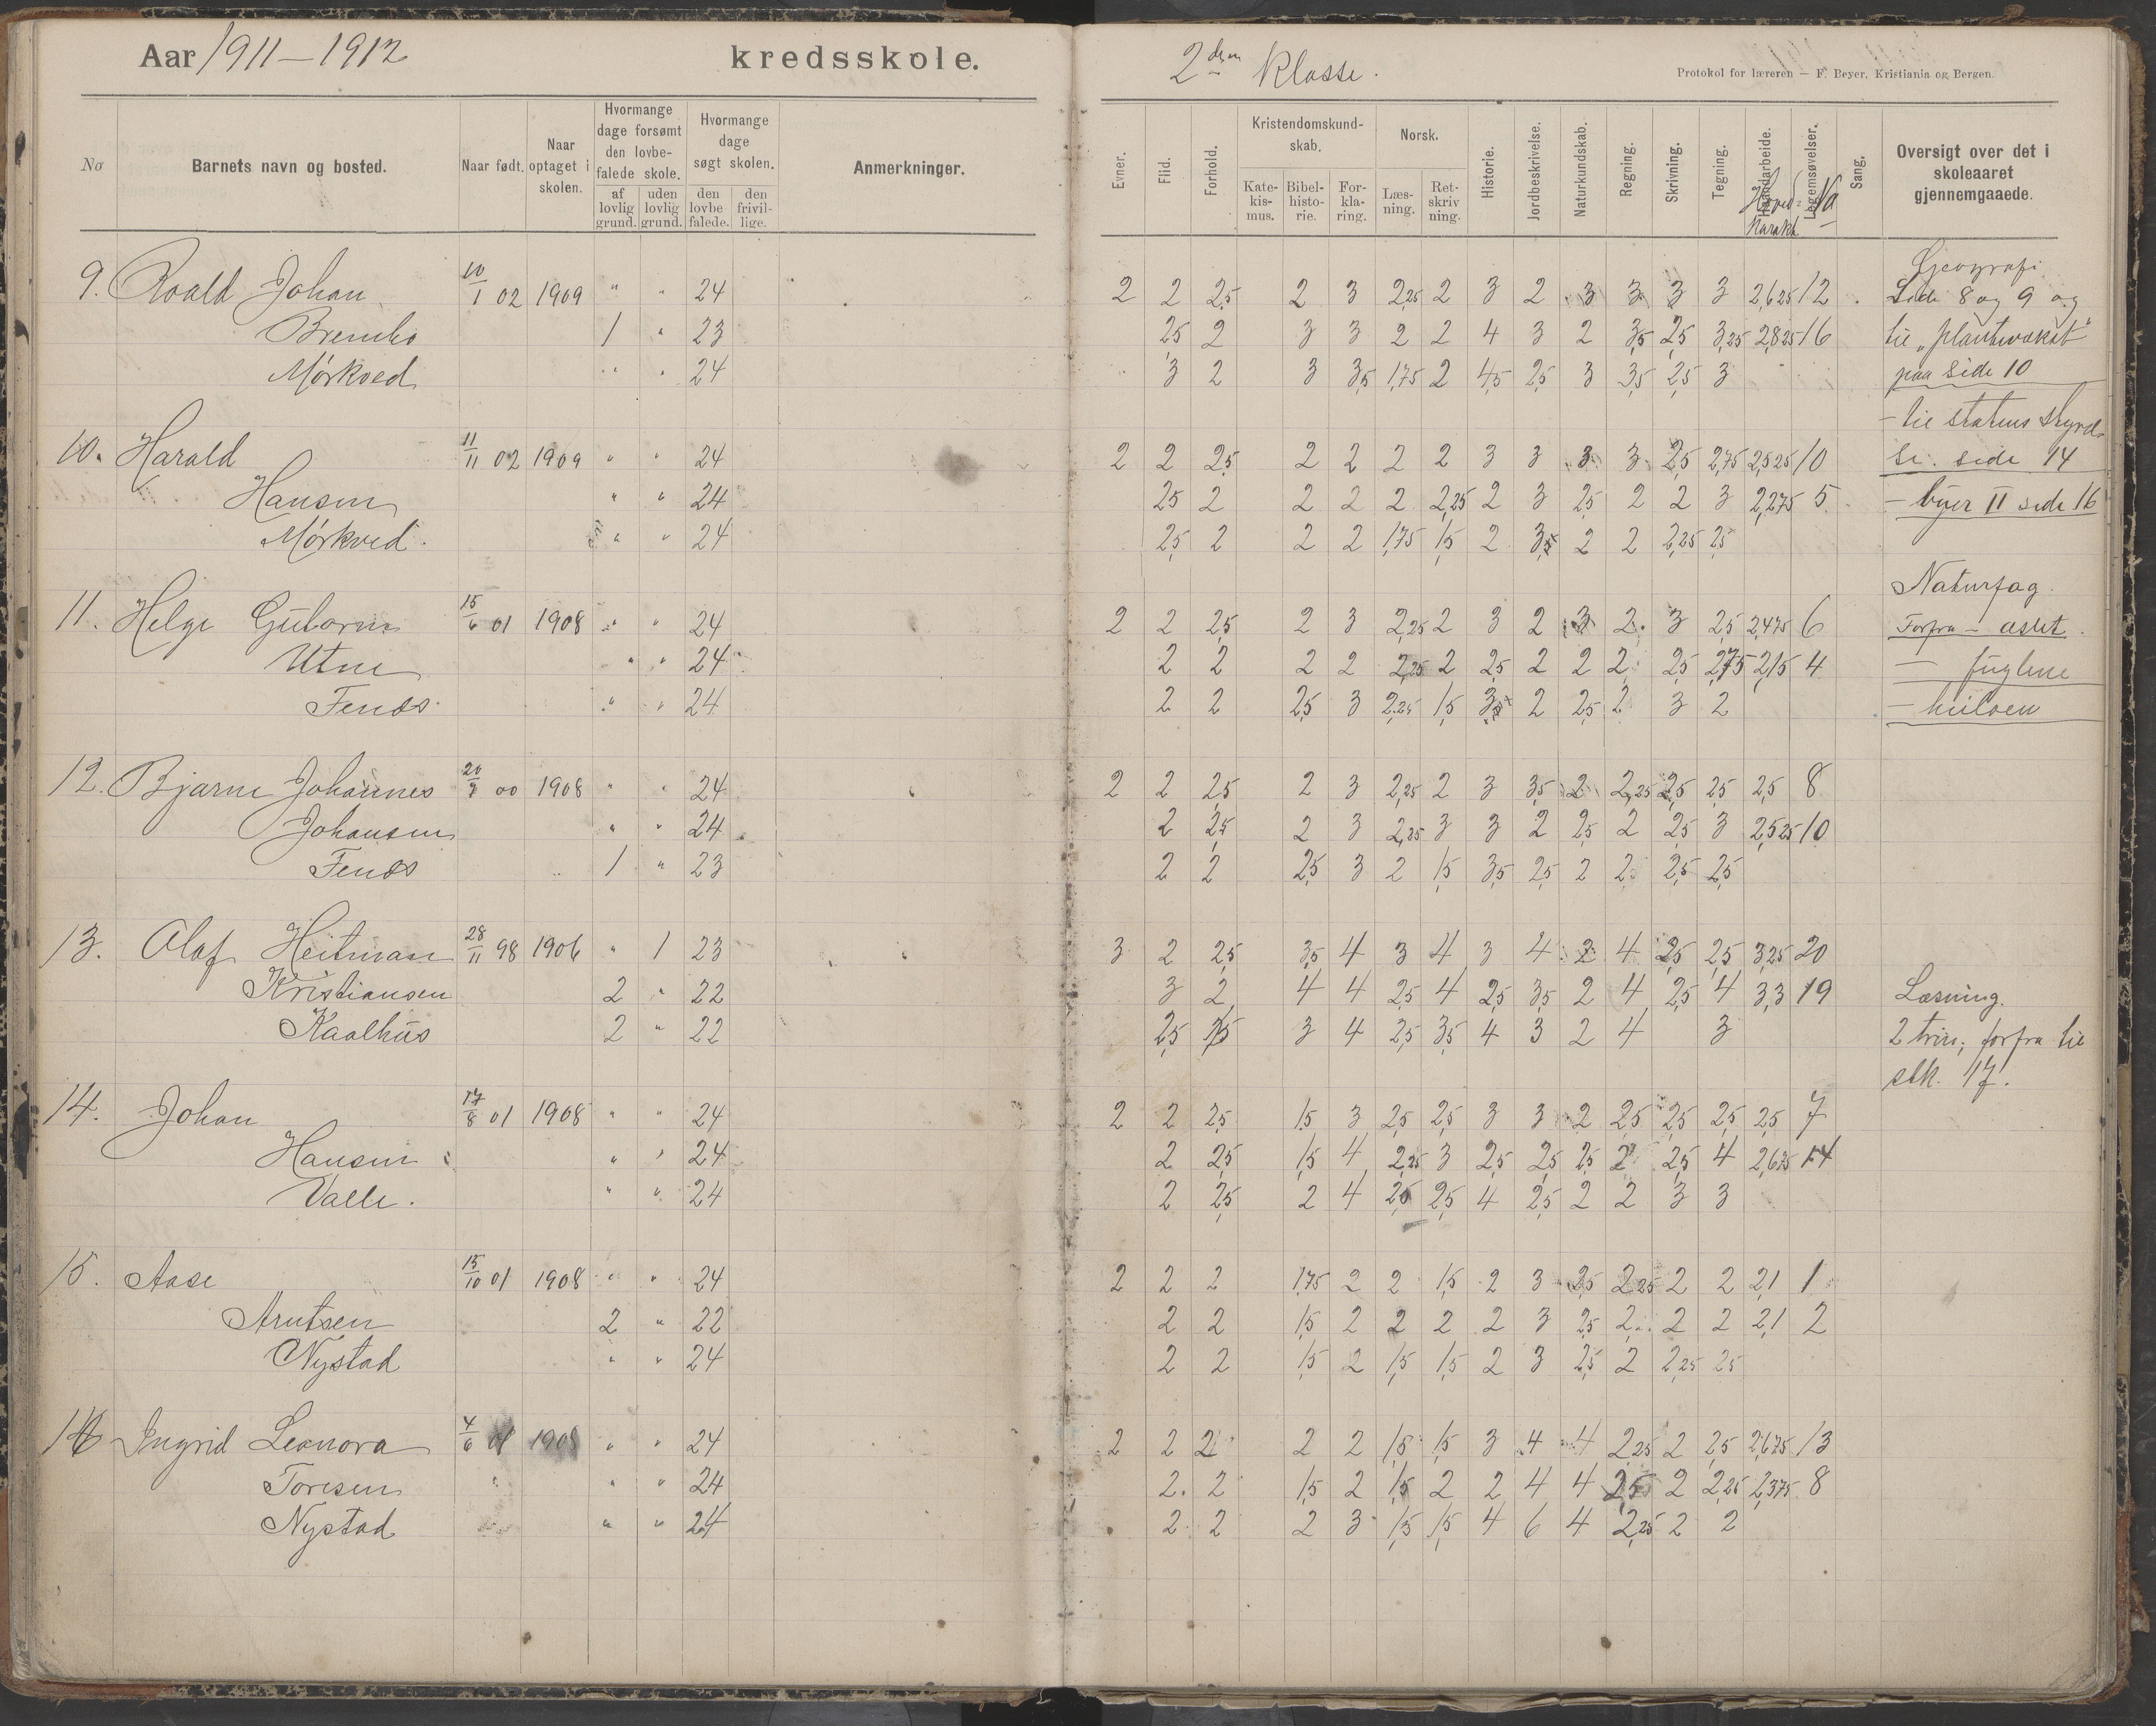 Aar 1911-1912 kredsskole.
2den Klasse.
Protokol for læreren — F. Beyer, Kristiania og Bergen.
No
Barnets navn og bosted.
Naar født.
Naar optaget i skolen.
Hvormange dage forsømt den lovbefalede skole.
af lovlig grund.
uden lovlig grund.
Hvormange dage søgt skolen.
den lovbefalede.
den frivillige.
Anmerkninger.
Evner.
Flid.
Forhold.
Kristendomskundskab.
Katekismus.
Bibelhistorie.
Forklaring.
Norsk.
Læsning.
Retskrivning.
Historie.
Jordbeskrivelse.
Naturkundskab.
Regning.
Skrivning.
Tegning.
Haandarbeide.
Legemsøvelser.
Hoved-Karakt
No
Sang.
Oversigt over det i skoleaaret gjennemgaaede.
9. Roald Johan 10/1 02 1909 " " 24 2 2 2,5 2 3 2,25 2 3 2 3 3 3 3 2,625 12
Bremho 1 " 23 2,5 2 3 3 2 2 4 3 2 3,5 2,5 3,25 2,825 16
Mørkved " " 24 3 2 3 3,5 1,75 2 4,5 2,5 3 3,5 2,5 3
10. Harald 11/11 02 1909 " " 24 2 2 2,5 2 2 2 2 3 3 3 3 2,5 2,75 2,525 10
Hansen " " 24 2,5 2 2 2 2 2,25 2 3 2,5 2 2 3 2,275 5
Mørkved. " " 24 2,5 2 2 2 1,75 1,5 2 3,5 2 2 2,25 2,5
11. Helge Gulborn 15/6 01 1908 " " 24 2 2 2,5 2 3 2,25 2 3 2 3 2 3 2,5 2,475 6
Utne " " 24 2 2 2 2 2,25 2 2,5 2 2 2 2,5 2,75 2,15 4
Fenes " " 24 2 2 2,5 3 2,25 1,5 3,5 2 2,5 2 3 2
12. Bjarne Johannes 20/9 00 1908 " " 24 2 2 2,5 2 3 2,25 2 3 3,5 2 2,25 2,5 2,5 2,5 8
Johansen " " 24 2 2,5 2 3 2,25 3 3 2 2,5 2 2,5 3 2,525 10
Fenes 1 " 23 2 2 2,5 3 2 1,5 3,5 2,5 2 2 2,5 2,5
13. Olaf Heitman 28/11 98 1906 " 1 23 3 2 2,5 3,5 4 3 4 3 4 2 4 2,5 2,5 3,25 20
Kristiansen 2 " 22 3 2 4 4 2,5 4 2,5 3,5 2 4 2,5 4 3,3 19
Kaalhus 2 " 22 2,5 3 4 2,5 3,5 4 3 2 4 3
14. Johan 17/8 01 1908 " " 24 2 2 2,5 1,5 3 2,5 2,5 3 3 2 2,5 2,5 2,5 2,5 7
Hansen " " 24 2 2,5 1,5 4 2,25 3 2,5 2,5 2,5 2 2,5 4 2,675 14
Valle. " " 24 2 2,5 2 4 2,5 2,5 4 2,5 2 2 3 3
15. Aase 15/10 01 1908 " " 24 2 2 2 1,75 2 2 1,5 2 3 2,5 2,25 2 2 2,1 1
Arntsen 2 " 22 2 2 1,5 2 2 2 2 3 2,5 2 2 2 2,1 2
Nystad " " 24 2 2 1,5 2 1,5 1,5 2 3 2,5 2 2,25 2,5
16 Ingrid Leonora 4/6 01 1908 " " 24 2 2 2 2 2 1,5 1,5 3 4 4 2,25 2 2,5 2,675 13
Toresen " " 24 2 2 1,5 2 1,5 2 2 4 4 2,5 2 2,25 2,375 8
Nystad " " 24 2 2 2 3 1,5 1,5 4 6 4 2,25 2 2
Geografi
Side 8 og 9 og
til "plantevækst"
paa side 10
- til statens styrel-
se. side 14
- byer II side 16
Naturfag.
Forfra - æslet.
- fuglene
- hvilven
Læsning.
2 trin; forfra til
stk. 17.